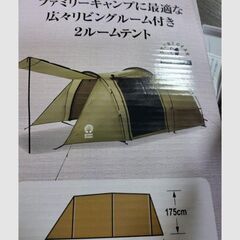 ファミリーキャンプに最適な
広々リビングルーム付き
2ルームテント
175cm